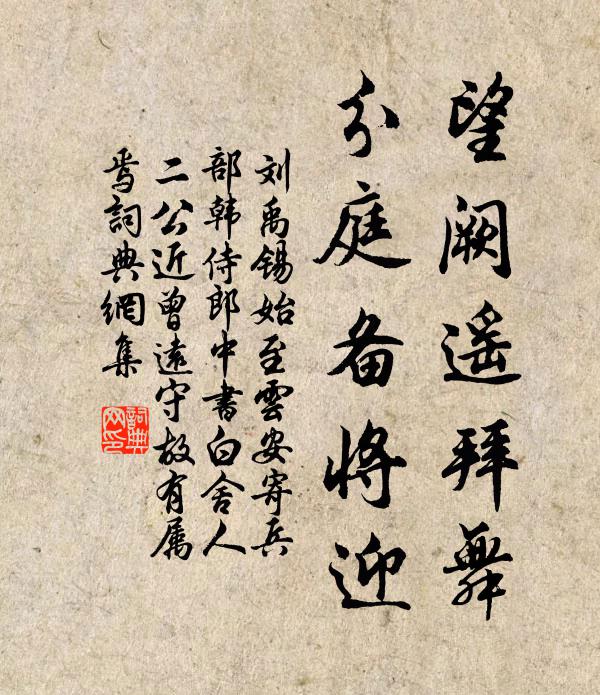 望阙遥拜舞
分庭备将迎
刘禹锡始至雲安寄兵
部韩侍郎中書白舍人
二公近曾遠守故有属
焉詞典網集
詞典
网印